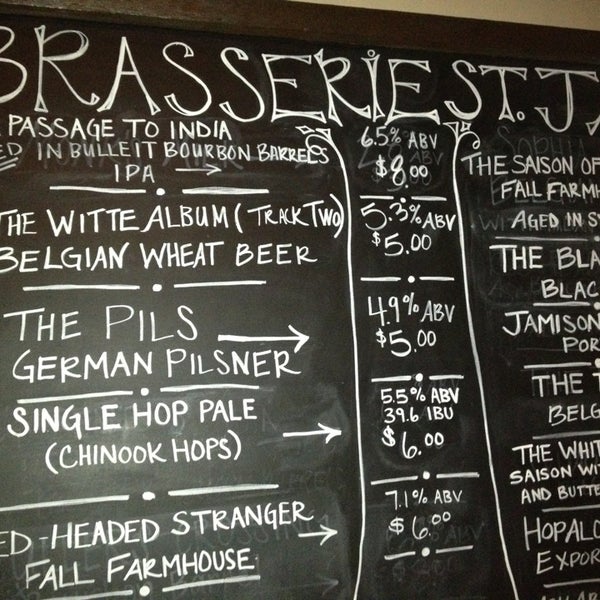 BRASSERIE ST. JA
PASSAGE TO INDIA
ED IN BULLEIT BOURBON BARRELS
IPA
6.5% ABV
$8.00
THE WITTE ALBUM (TRACK TWO)
BELGIAN WHEAT BEER
5.3% ABV
$5.00
THE PILS
GERMAN PILSNER
4.9% ABV
$5.00
SINGLE HOP PALE
(CHINOOK HOPS)
5.5% ABV
39.6 IBU
$6.00
ED-HEADED STRANGER
FALL FARMHOUSE
7.1% ABV
$6.00
THE SAISON OF
FALL FARMH
AGED IN S
THE BLA
BLAC
JAMISON
POR
THE T
BELG
THE WHIT
SAISON WIT
AND BUTTE
HOPALO
EXPOR